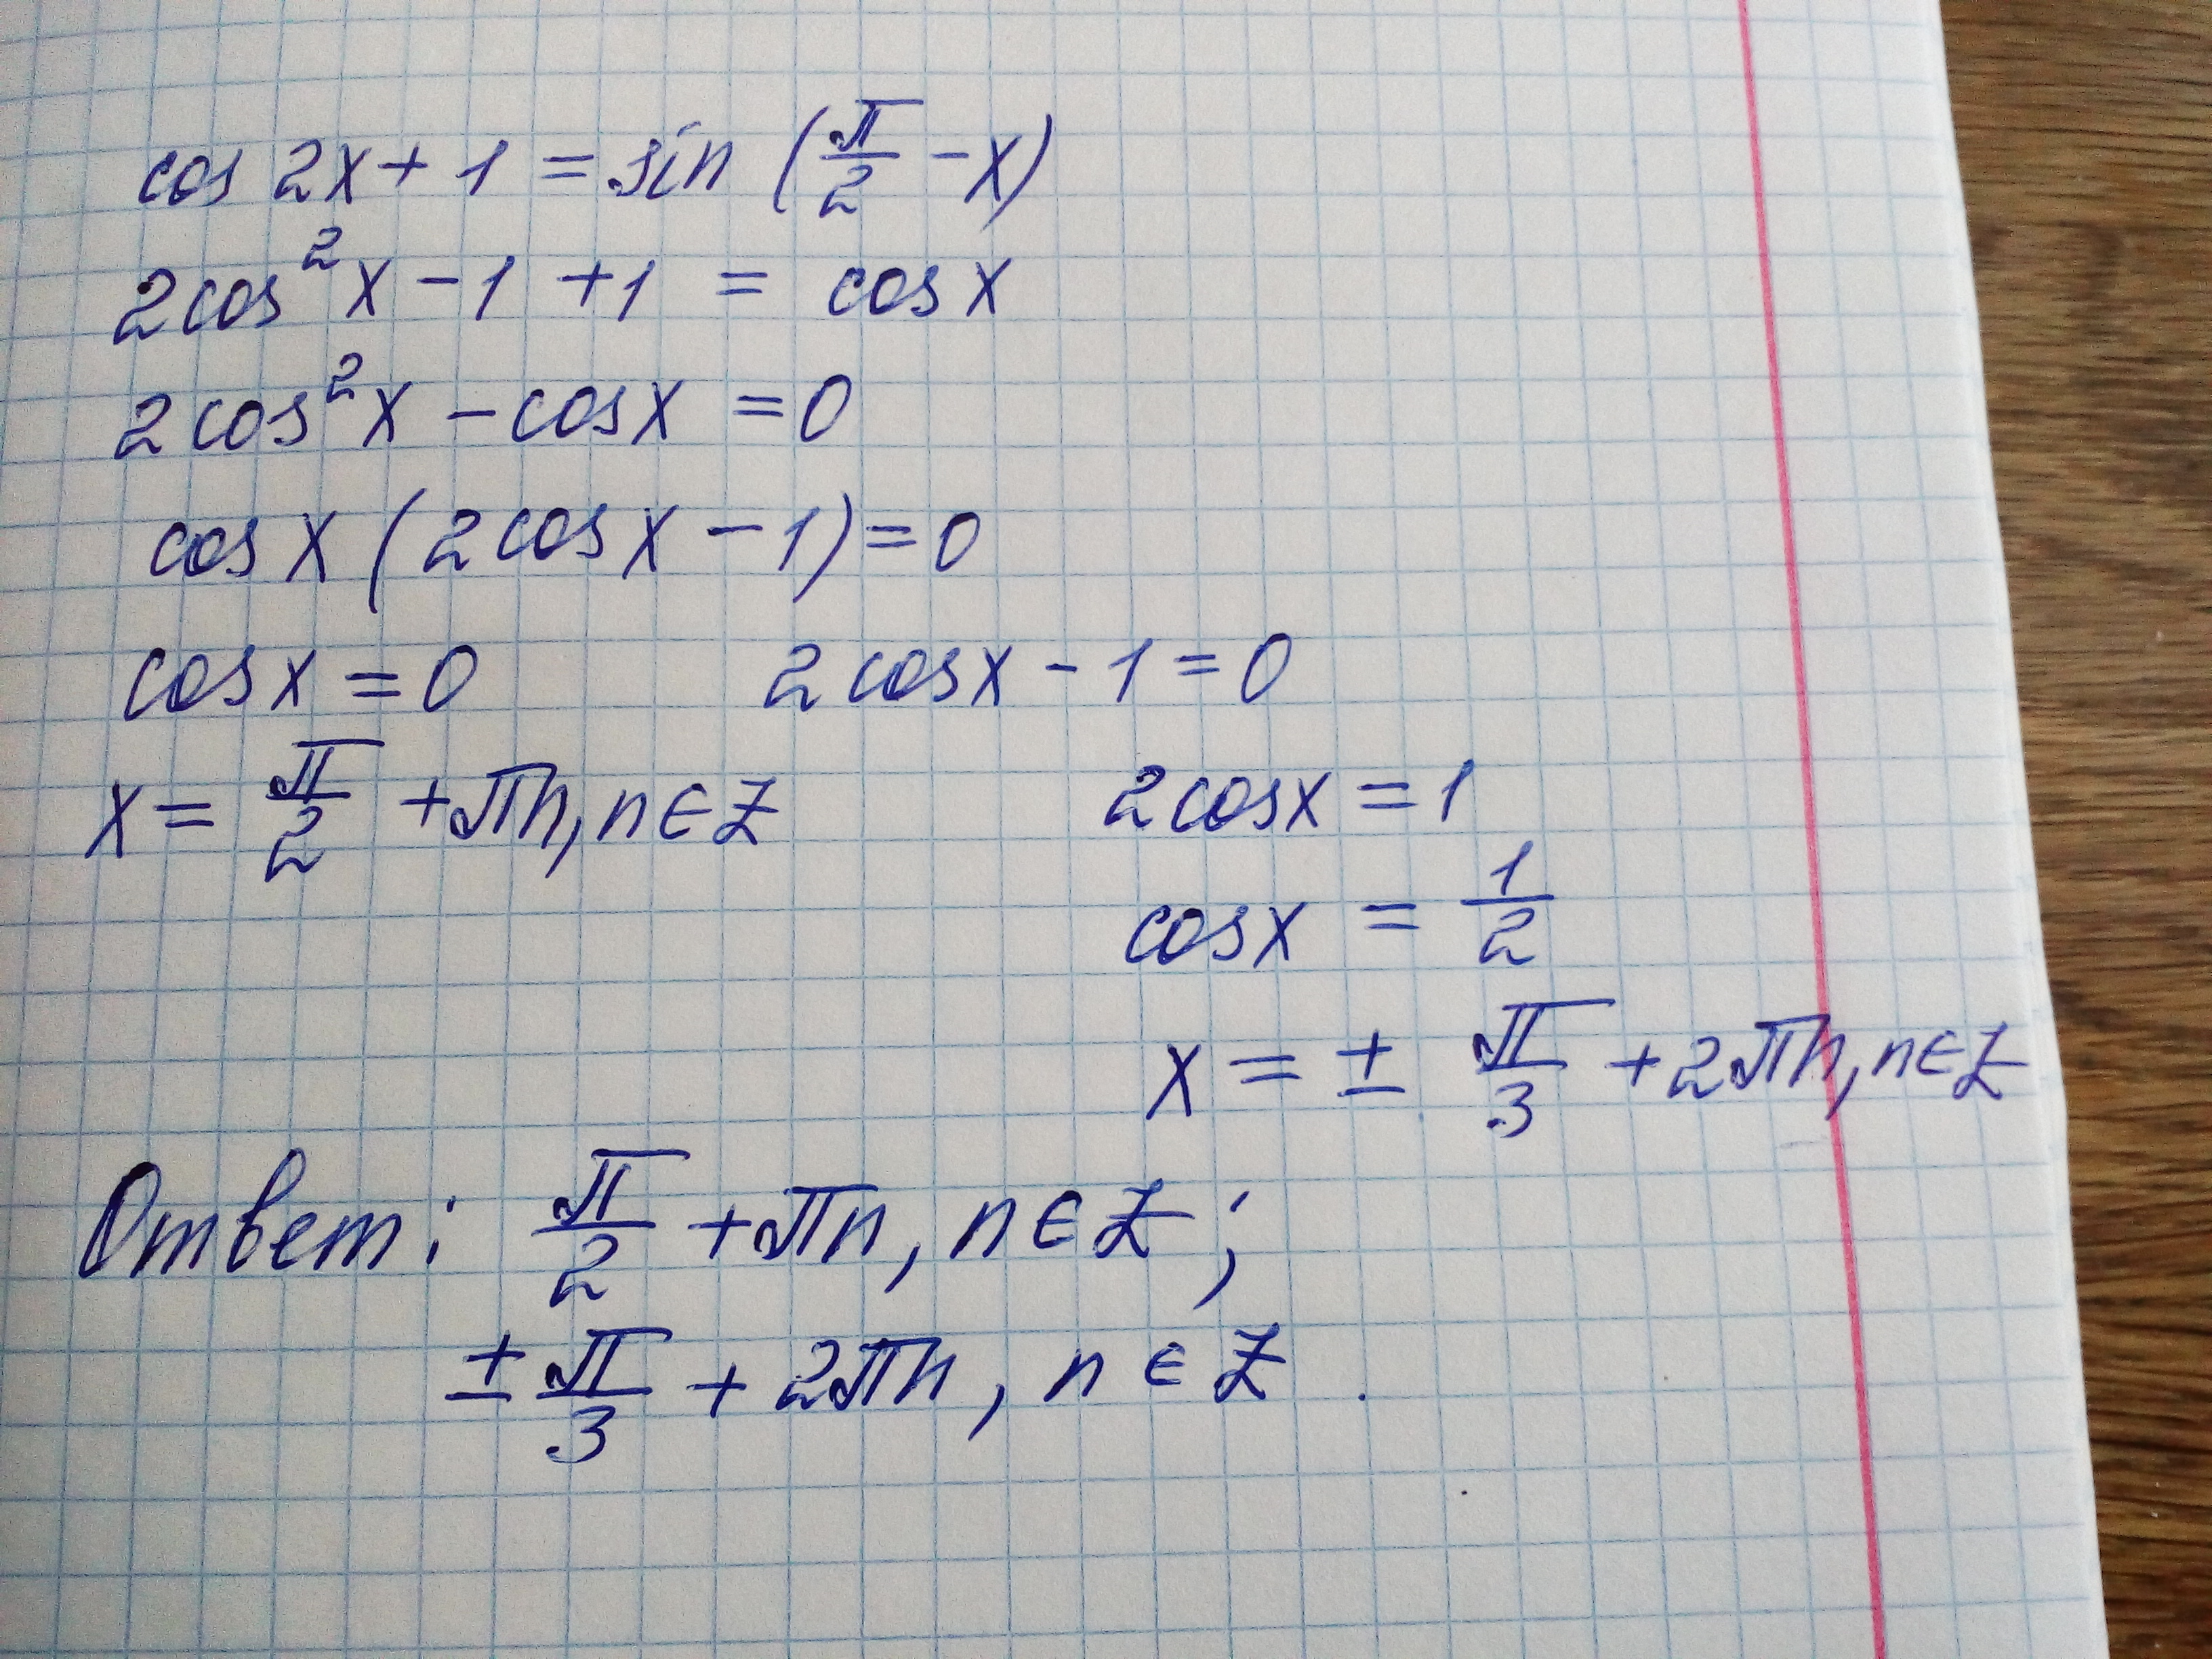 cos 2x + 1 = sin (π/2 - x)
2cos²x - 1 + 1 = cos x
2cos²x - cos x = 0
cos x (2cos x - 1) = 0
cos x = 0 2cos x - 1 = 0
x = π/2 + πn, n ∈ Z 2cos x = 1
cos x = 1/2
x = ± π/3 + 2πn, n ∈ Z
Ответ: π/2 + πn, n ∈ Z;
± π/3 + 2πn, n ∈ Z.